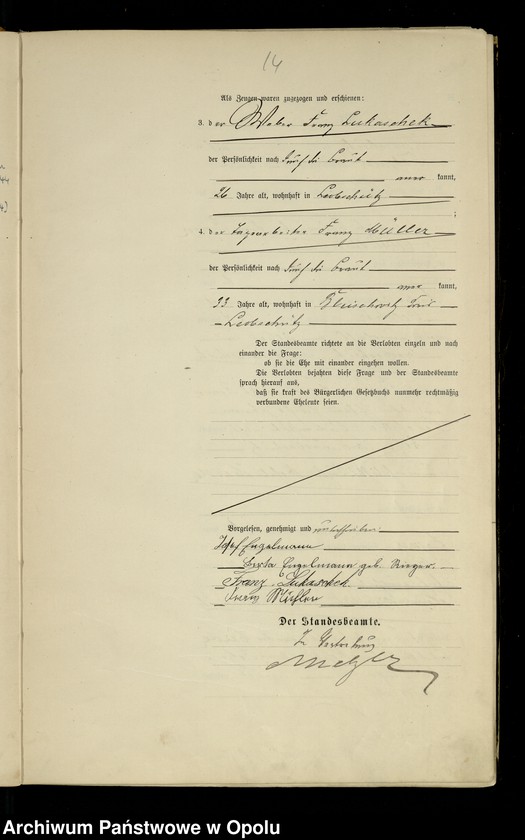 14
Als Zeugen waren zugezogen und erschienen:
3. der Weber Franz Lukaschek
der Persönlichkeit nach durch die Braut
kannt,
26 Jahre alt, wohnhaft in Leobschütz
;
4. der Tagearbeiter Franz Müller
der Persönlichkeit nach durch die Braut
kannt,
33 Jahre alt, wohnhaft in
Leobschütz
Der Standesbeamte richtete an die Verlobten einzeln und nach
einander die Frage:
ob sie die Ehe mit einander eingehen wollen.
Die Verlobten bejahten diese Frage und der Standesbeamte
sprach hierauf aus,
daß sie kraft des Bürgerlichen Gesetzbuchs nunmehr rechtmäßig
verbundene Eheleute seien.
Vorgelesen, genehmigt und unterschrieben
Josef Engelmann
Engelmann geb. Rieger.
Franz Lukaschek.
Franz Müller
Der Standesbeamte.
In Vertretung
Archiwum Państwowe w Opolu